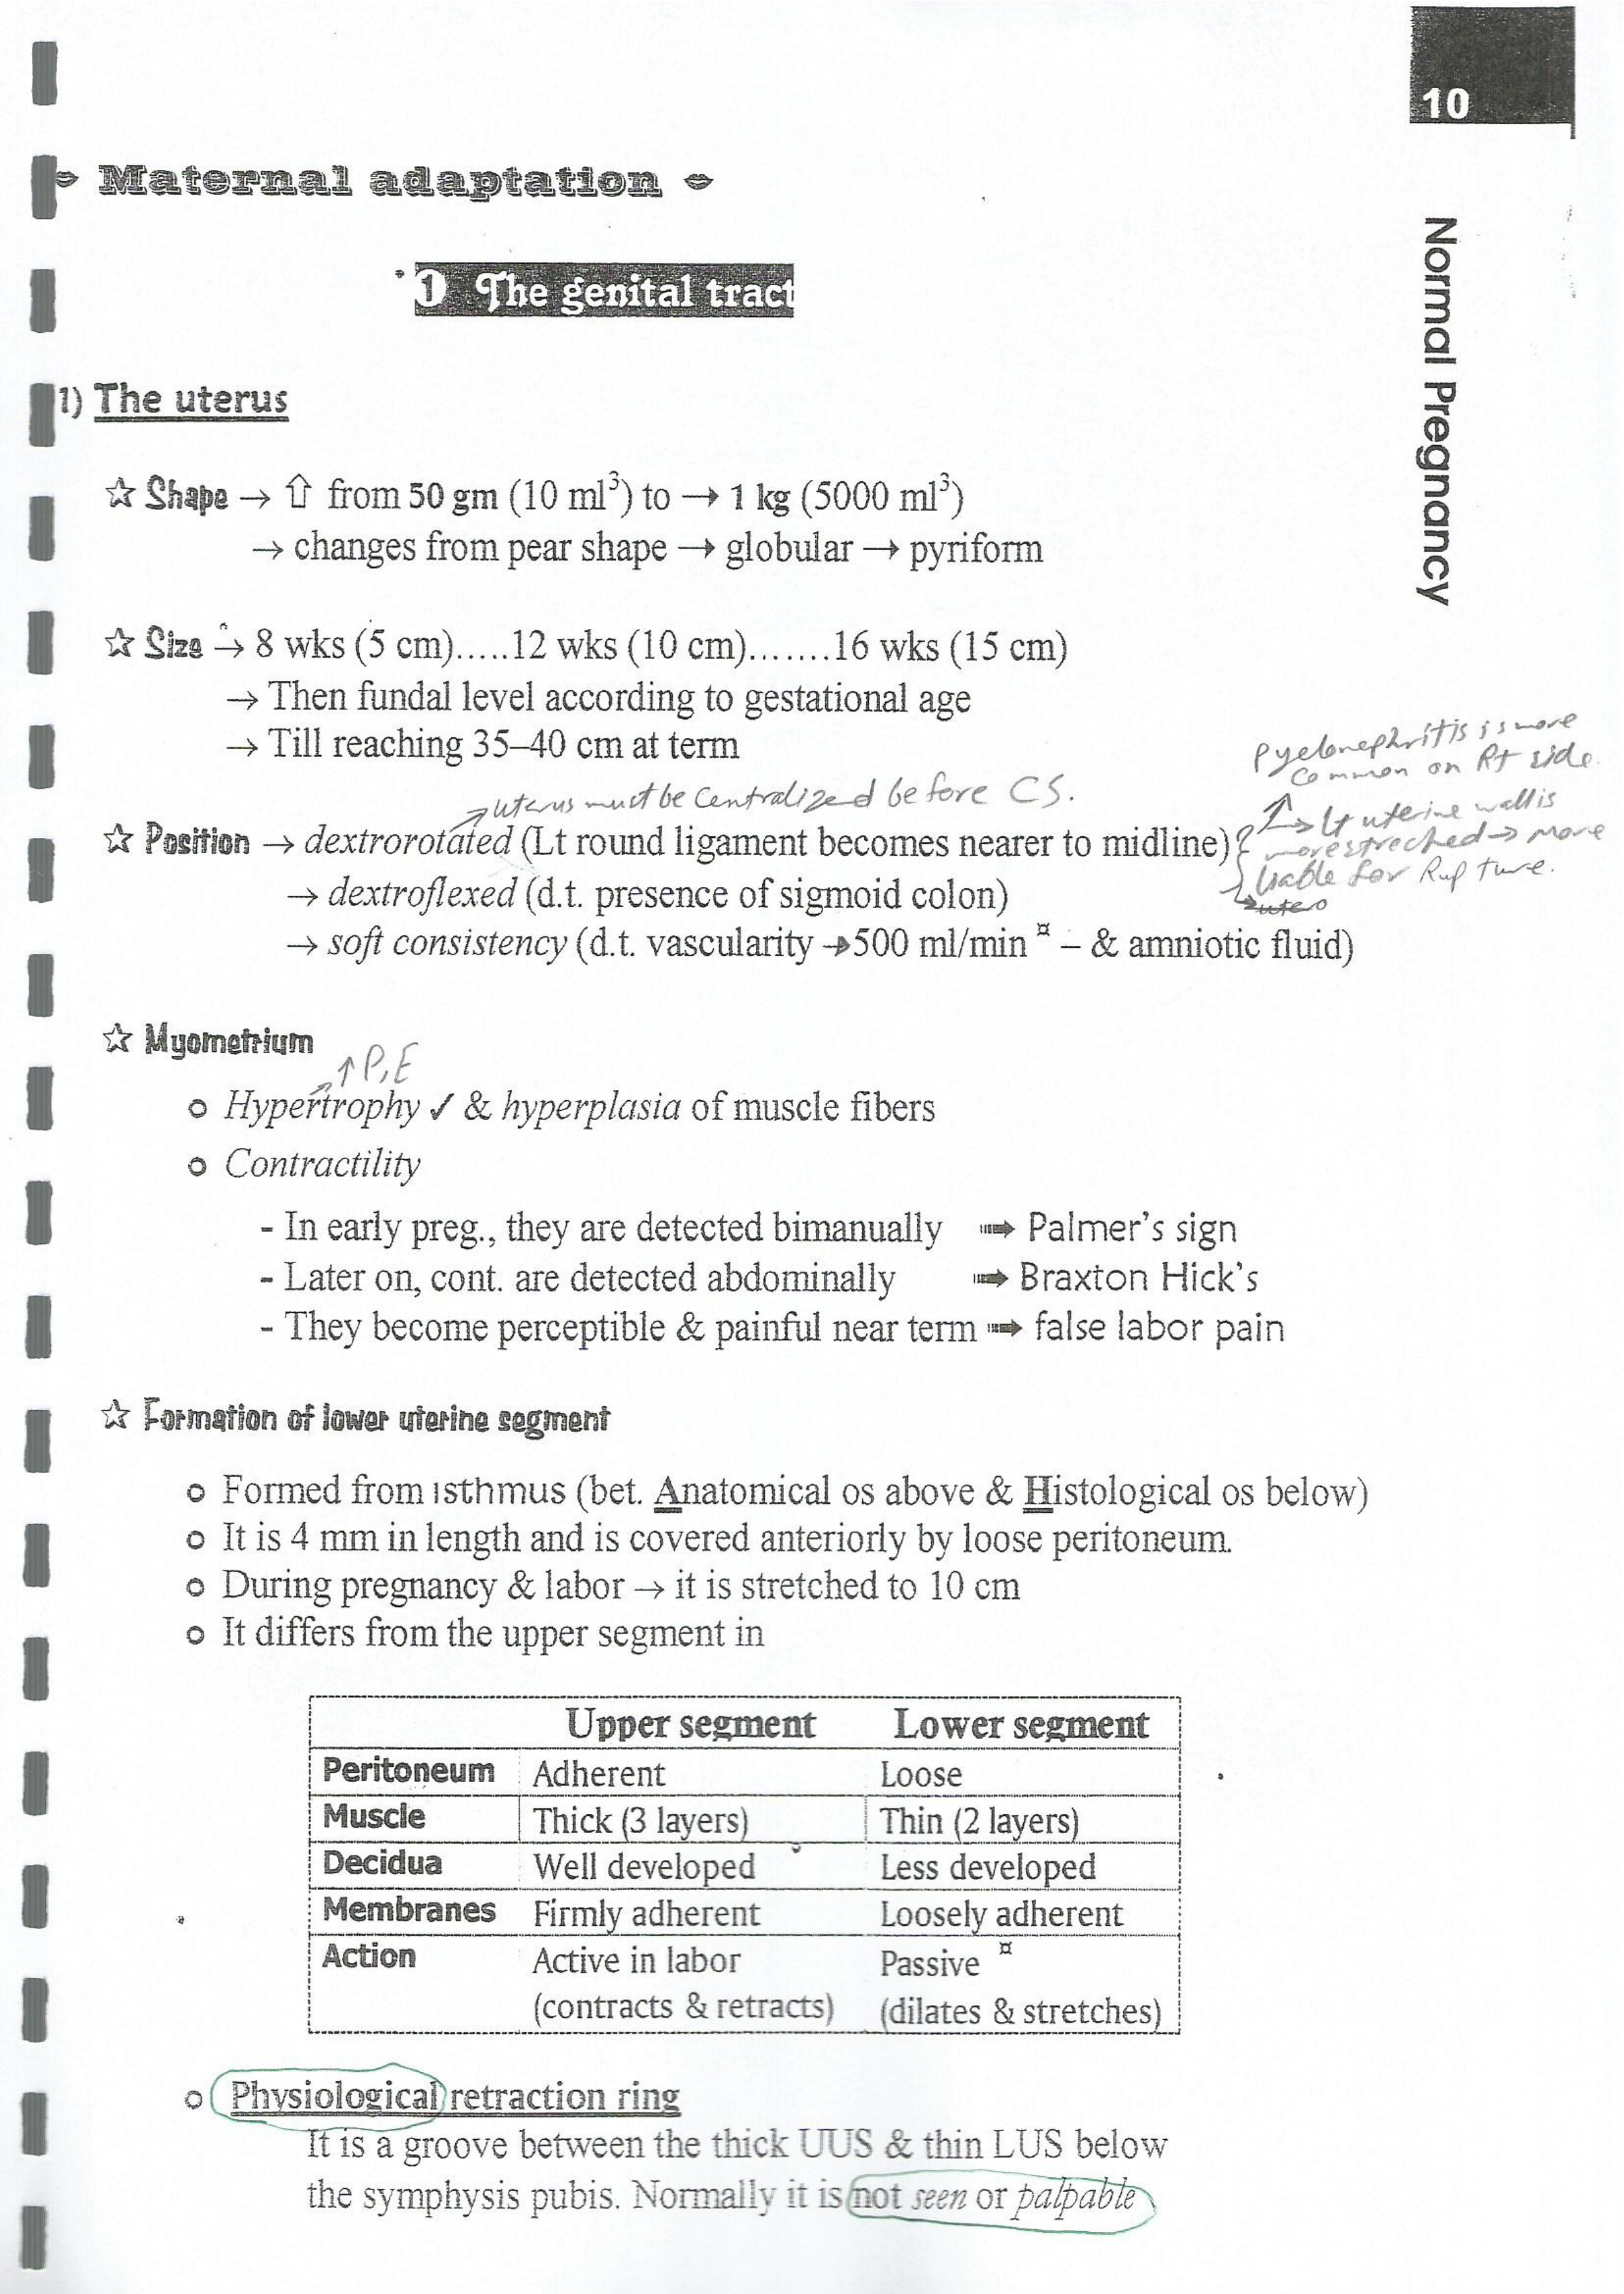 10
Normal Pregnancy
Maternal adaptation
1 The genital tract
1) The uterus
☆ Shape → ⇧ from 50 gm (10 ml³) to → 1 kg (5000 ml³)
→ changes from pear shape → globular → pyriform
☆ Size → 8 wks (5 cm).....12 wks (10 cm).......16 wks (15 cm)
→ Then fundal level according to gestational age
→ Till reaching 35–40 cm at term
pyelonephritis is more
common on Rt side.
↗ uterus must be centralized before CS.
☆ Position → dextrorotated (Lt round ligament becomes nearer to midline)
→ Lt uterine wall is
more streched → more
liable for Rupture.
→ dextroflexed (d.t. presence of sigmoid colon)
→ soft consistency (d.t. vascularity → 500 ml/min ¤ – & amniotic fluid)
☆ Myometrium
↑ P, E
o Hypertrophy ✓ & hyperplasia of muscle fibers
o Contractility
- In early preg., they are detected bimanually ➠ Palmer's sign
- Later on, cont. are detected abdominally ➠ Braxton Hick's
- They become perceptible & painful near term ➠ false labor pain
☆ Formation of lower uterine segment
o Formed from isthmus (bet. Anatomical os above & Histological os below)
o It is 4 mm in length and is covered anteriorly by loose peritoneum.
o During pregnancy & labor → it is stretched to 10 cm
o It differs from the upper segment in
Upper segment Lower segment
Peritoneum Adherent Loose
Muscle Thick (3 layers) Thin (2 layers)
Decidua Well developed Less developed
Membranes Firmly adherent Loosely adherent
Action Active in labor Passive ¤
(contracts & retracts) (dilates & stretches)
o Physiological retraction ring
It is a groove between the thick UUS & thin LUS below
the symphysis pubis. Normally it is not seen or palpable